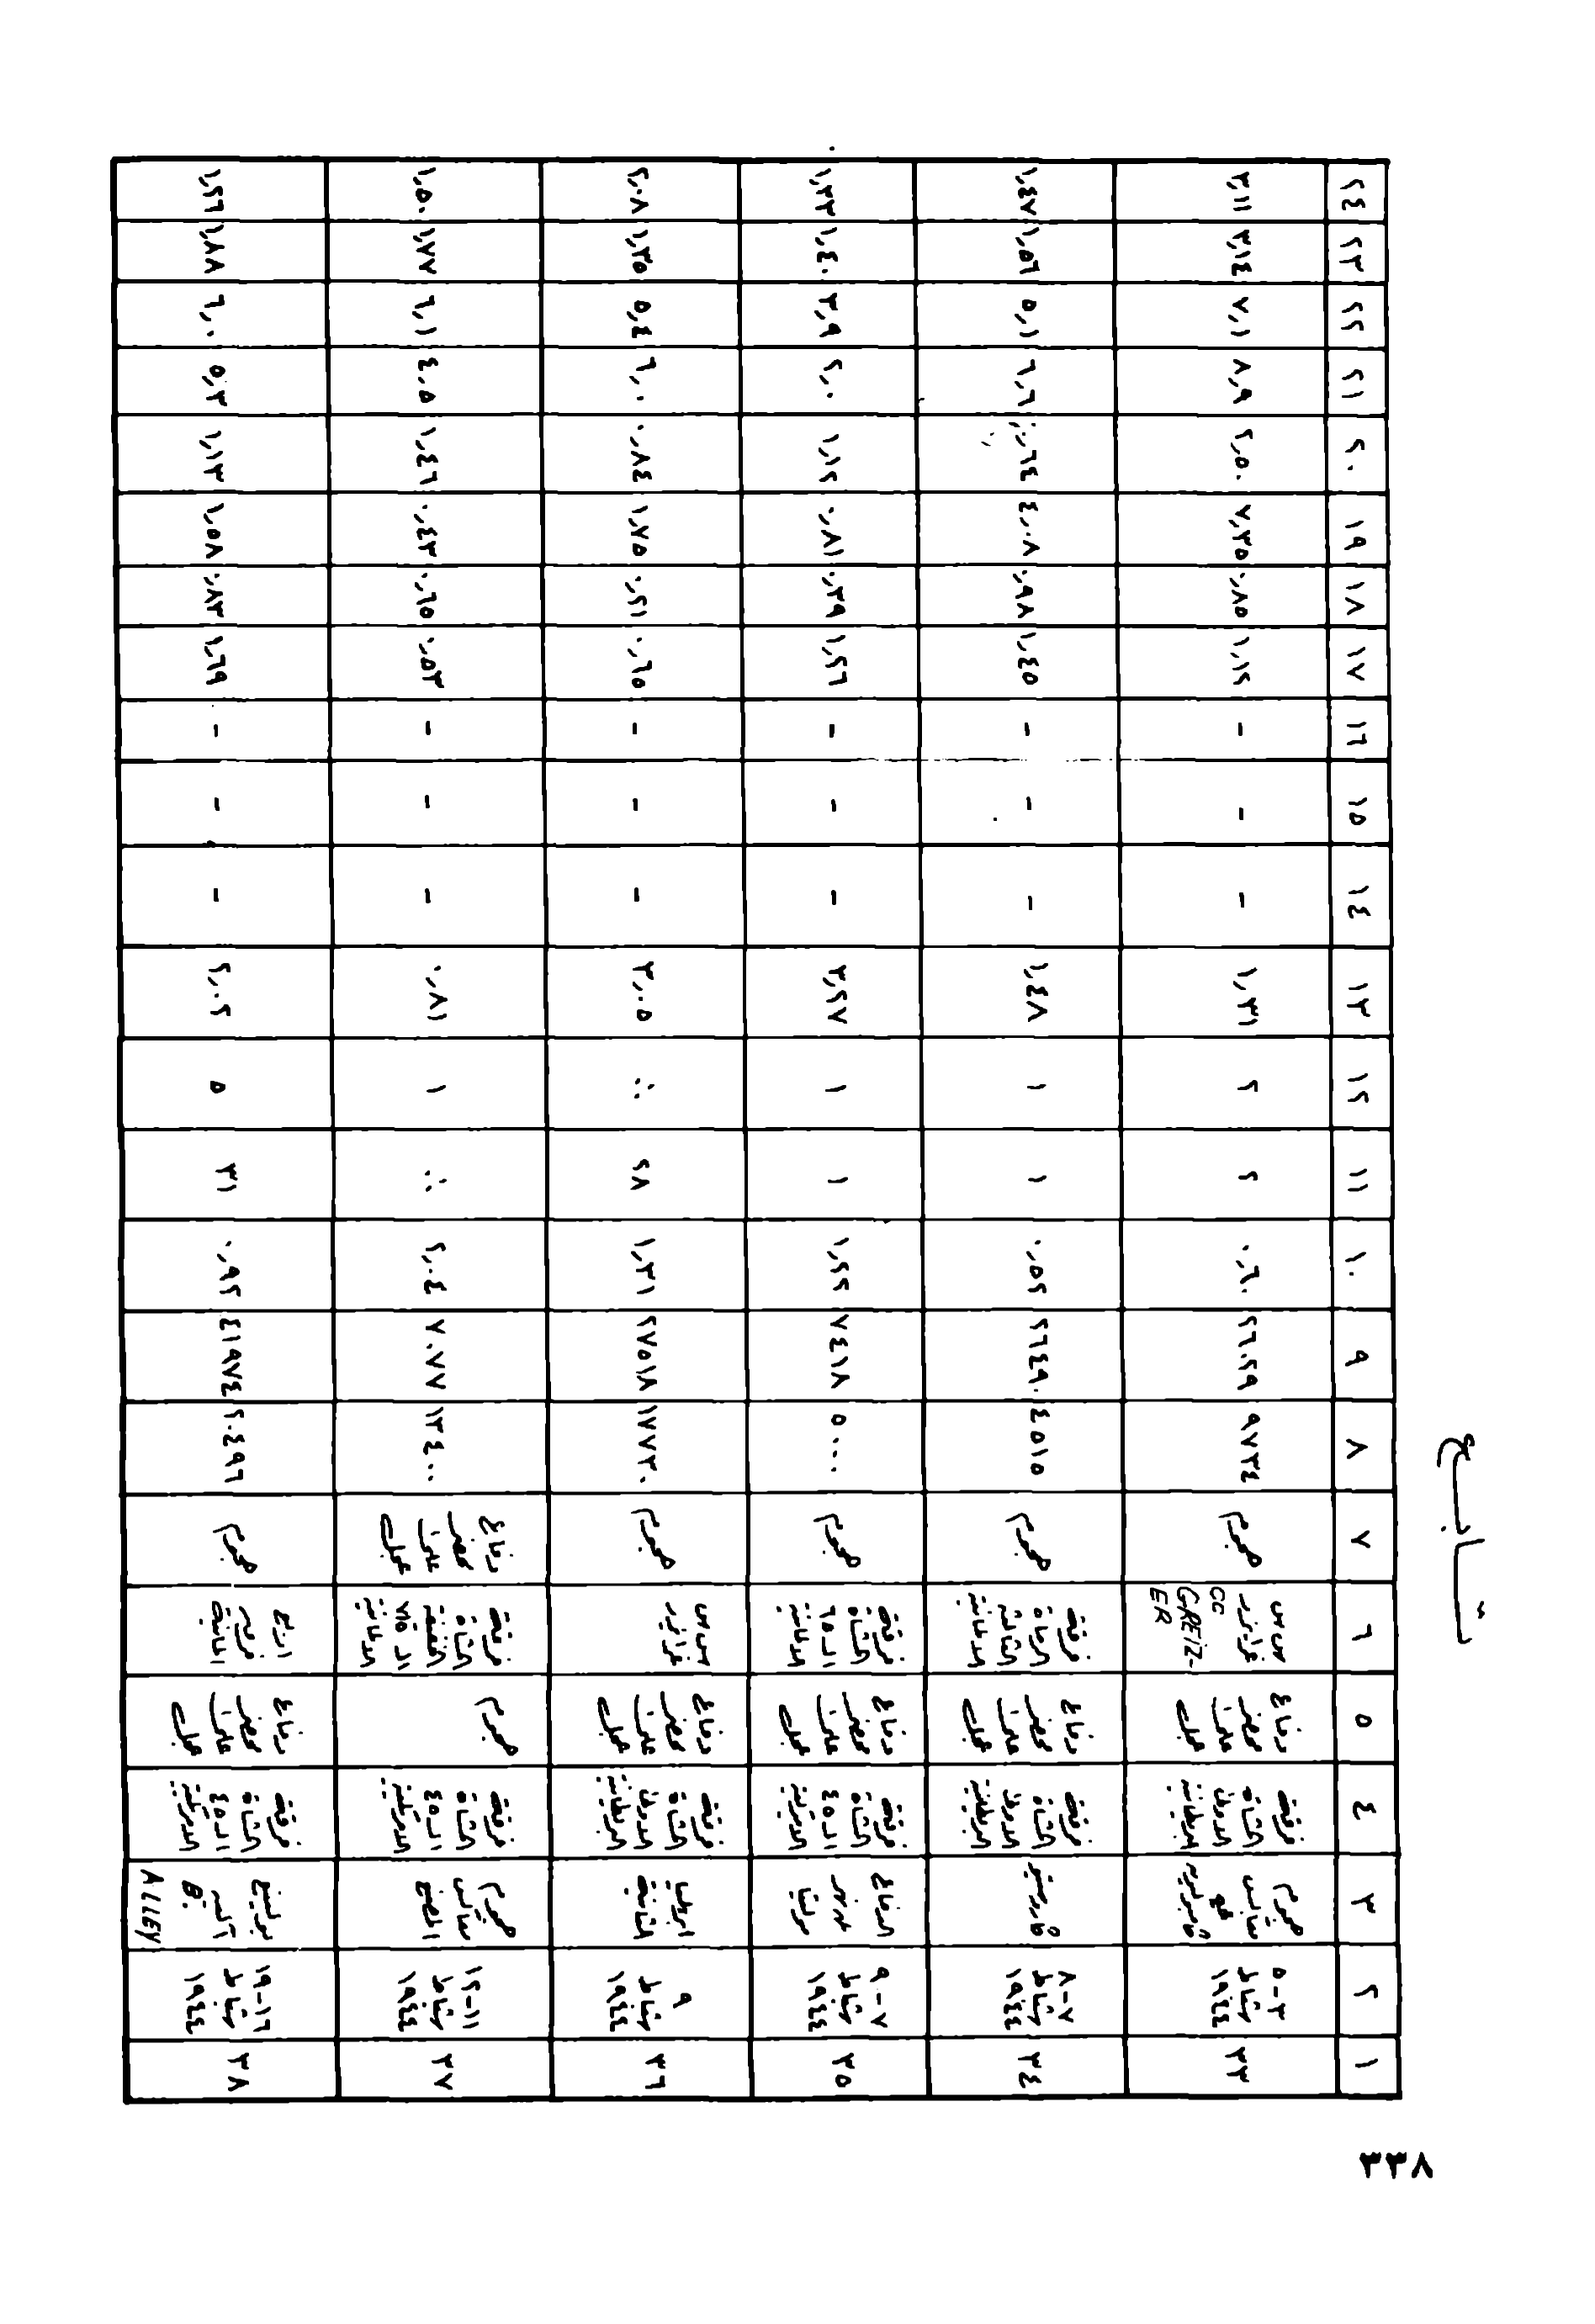 تـــابـــع
١ ٢ ٣ ٤ ٥ ٦ ٧ ٨ ٩ ١٠ ١١ ١٢ ١٣ ١٤ ١٥ ١٦ ١٧ ١٨ ١٩ ٢٠ ٢١ ٢٢ ٢٣ ٢٤
٣٣ ٣-٥ شباط ١٩٤٤ هجوم معاكس فرقة المشاة الاولى البريطانية دفاع محضر على عجل س س غرايزر CG GREIZ-ER هجوم ٩٧٣٤ ٢٦٠٢٩ ٠,٦٠ ٢ ٢ ١,٣١ - - - ١,١٢ ٠,٨٥ ٧,٣٥ ٢,٥٠ ٨,٩ ٧,١ ٣,١٤ ٣,١١
٣٤ ٧-٨ شباط ١٩٤٤ فرقة المشاة الاولى البريطانية دفاع محضر على عجل فرقة الرماة الثالثة الالمانية هجوم ٤٥١٥ ٢٦٤٩٠ ٠,٥٢ ١ ١ ١,٤٨ - - - ١,٤٥ ٠,٩٨ ٤,٠٨ ٠,٦٤ ٦,٦ ٥,١ ١,٥٦ ١,٤٧
٣٥ ٧-٩ شباط ١٩٤٤ الدفاع عن نهر مولتا فرقة المشاة الـ٤٥ الامريكية دفاع محضر على عجل فرقة المشاة الـ٦٥ الالمانية هجوم ٥٠٠٠ ٧٤١٨ ١,٢٢ ١ ١ ٣,٢٧ - - - ١,٢٦ ٠,٣٩ ٠,٨١ ١,١٢ ٢,٠ ٣,٩ ١,٤٠ ١,٣٣
٣٦ ٩ شباط ١٩٤٤ ابريليا الثانية فرقة المشاة الاولى البريطانية دفاع محضر على عجل س س غرايزر هجوم ١٧٧٣٠ ٢٧٥١٨ ١,٣١ ٢٨ ∴ ٣,٠٥ - - - ٠,٦٥ ٠,٢١ ١,٧٥ ٠,٨٤ ٦,٠ ٥,٤ ١,٣٥ ٢,٠٨
٣٧ ١١-١٢ شباط ١٩٤٤ هجوم معاكس المصنع فرقة المشاة الـ٤٥ الامريكية هجوم فرقة المشاة الخفيفة الـ٧١٥ الالمانية دفاع محضر على عجل ١٣٤٠٠ ٧٠٧٧ ٢,٠٤ ∴ ١ ٠,٨١ - - - ٠,٥٣ ٠,٦٥ ٠,٤٣ ١,٤٦ ٤,٥ ٦,١ ١,٧٧ ١,٥٠
٣٨ ١٦-١٩ شباط ١٩٤٤ بولينغ آلي B. ALLEY فرقة المشاة الـ٤٥ الامريكية دفاع محضر على عجل اربع فرق المانية هجوم ٢٠٤٩٦ ٤١٩٧٤ ٠,٩٢ ٣١ ٥ ٢,٠٢ - - - ١,٦٩ ٠,٨٣ ١,٥٨ ١,١٣ ٥,٣ ٦,٠ ١,٨٨ ١,٢٦
٣٣٨